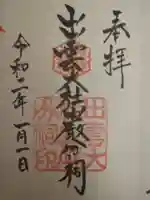 奉拝
出雲大社 分祠
令和二年一月一日